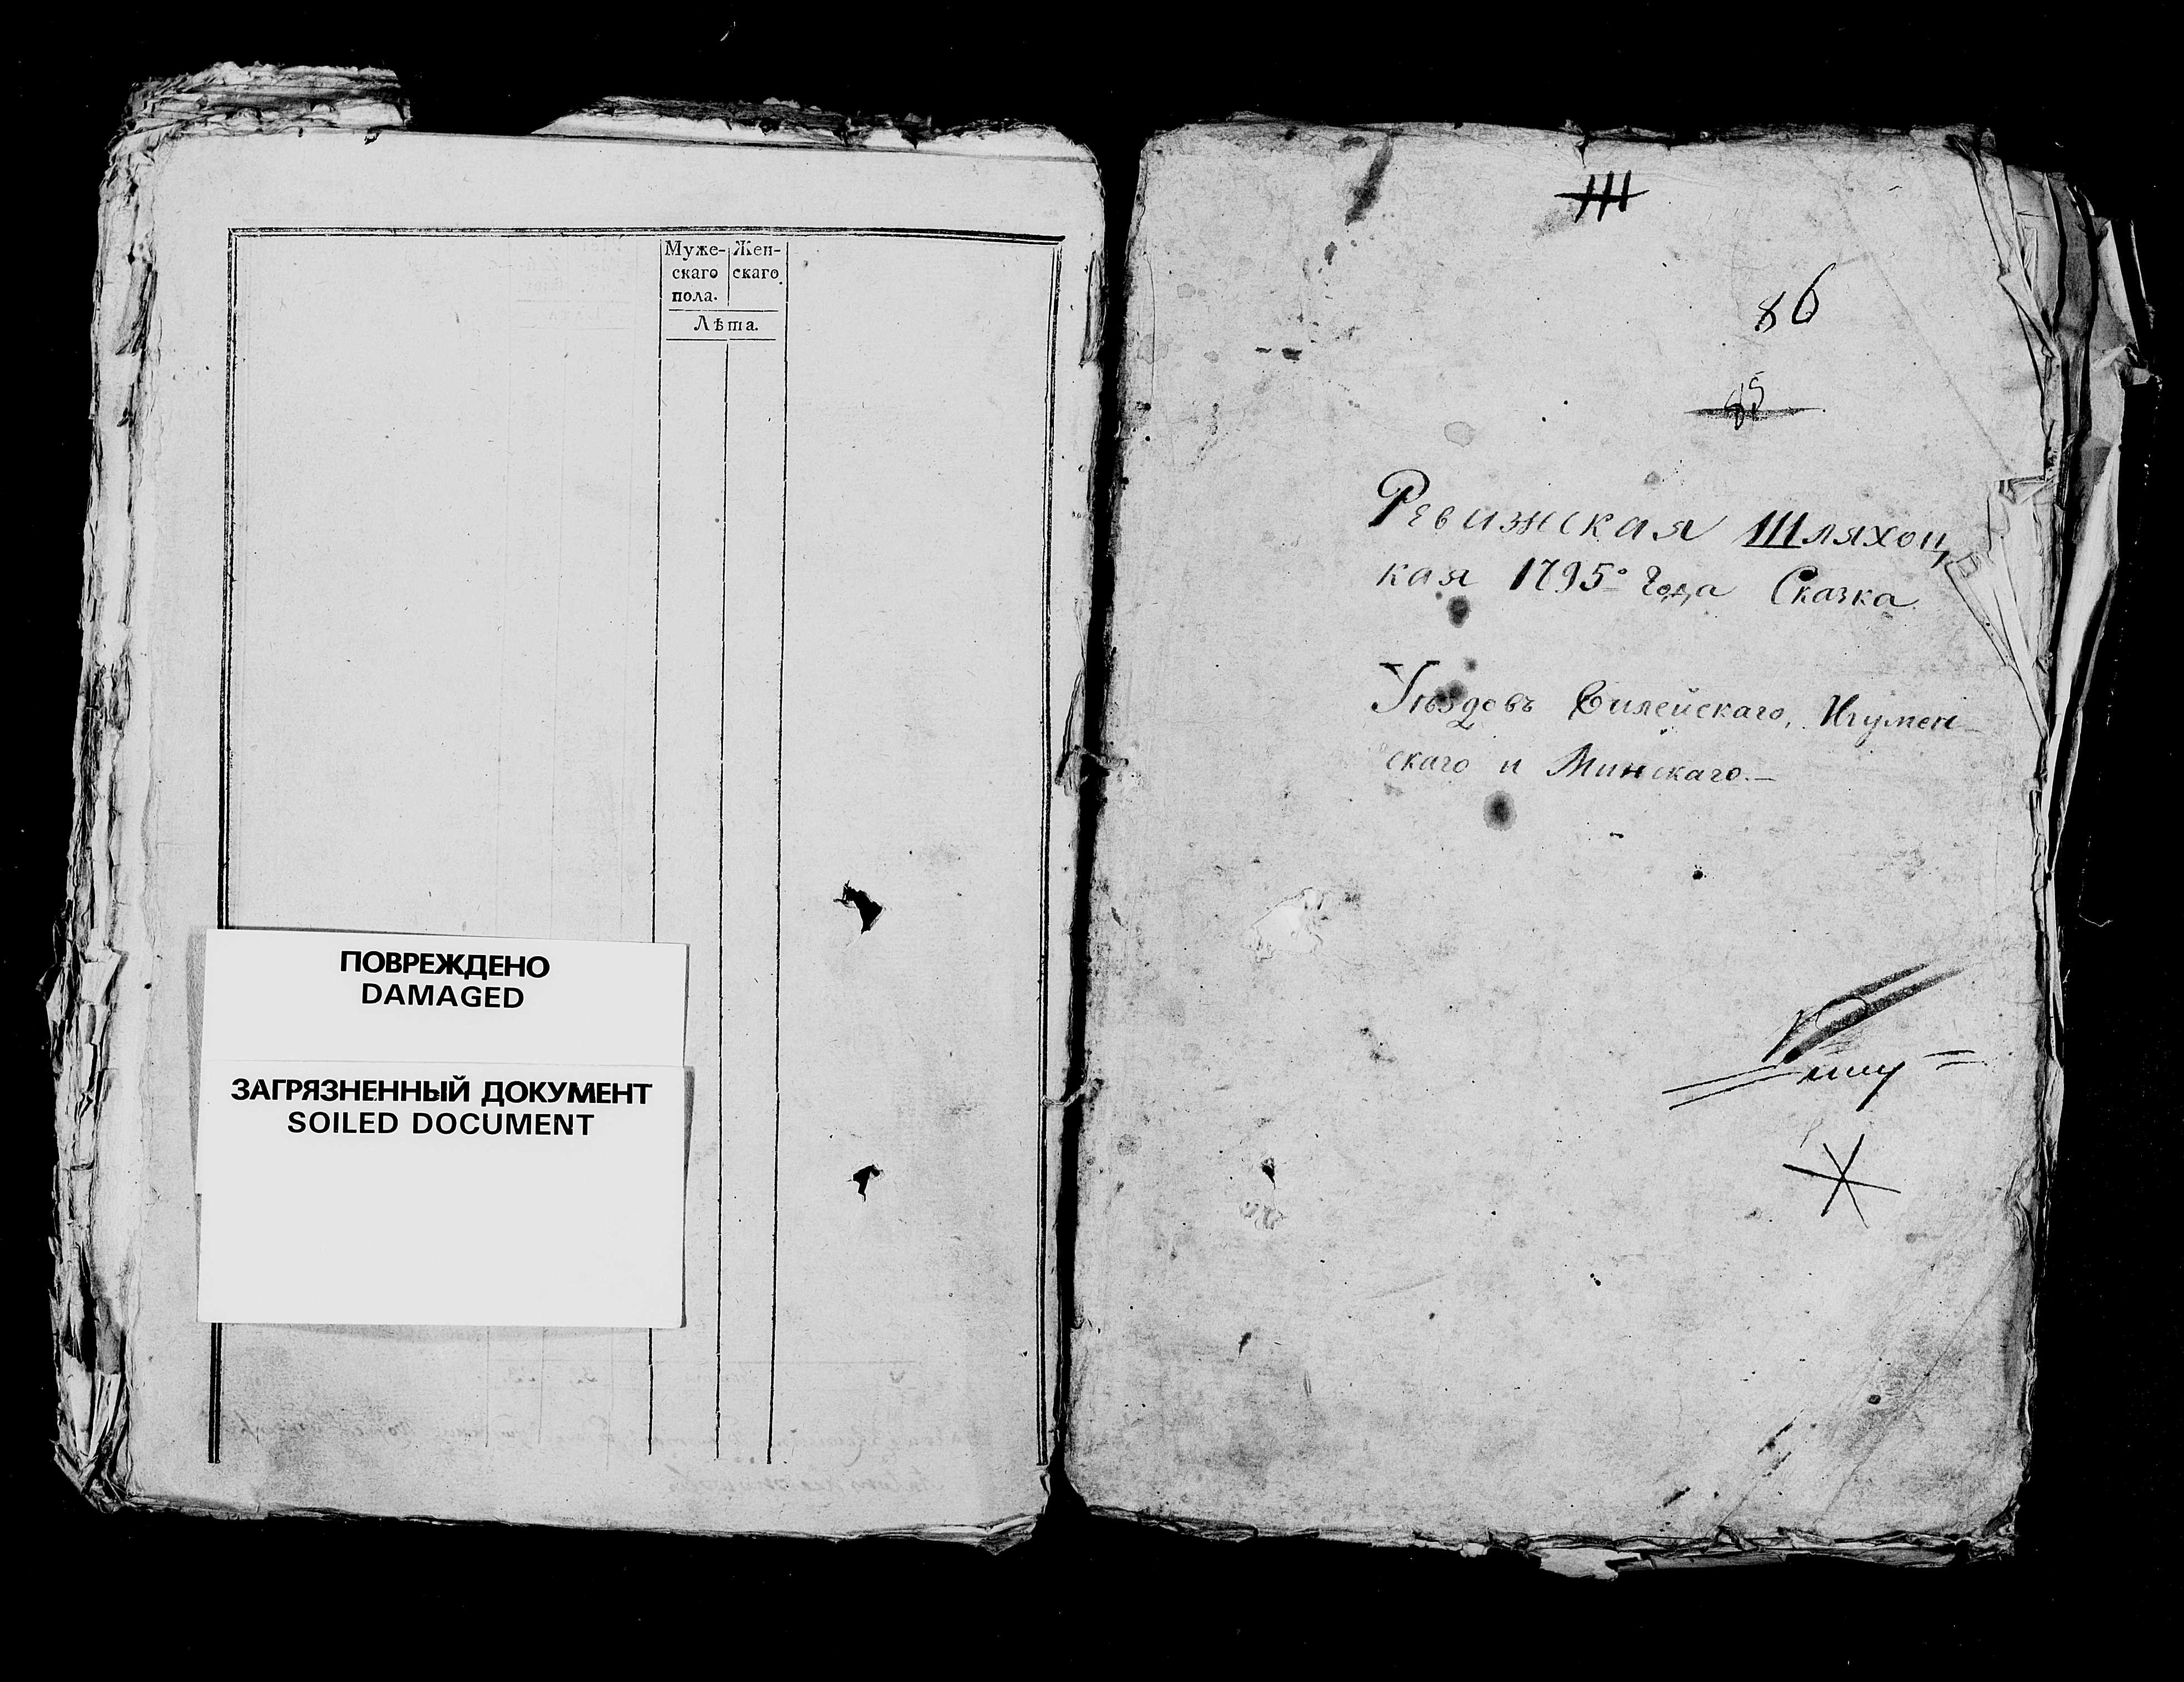 Муже-
скаго
пола.
Жен-
скаго.
Лѣта.
ПОВРЕЖДЕНО
DAMAGED
ЗАГРЯЗНЕННЫЙ ДОКУМЕНТ
SOILED DOCUMENT
86
85
Ревизская Шляхоц
кая 1795º года Сказка
Уѣздовъ Вилейскаго, Игумен-
скаго и Минскаго.—